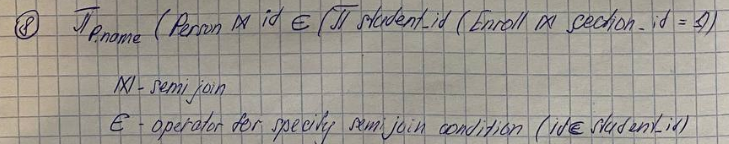 ⑧ π p.name (Person ⋈ id ∈ (π student_id (Enroll ⋈ section_id = 9)
⋈ - semi join
∈ - operator for specify semi join condition (id∈ student_id)